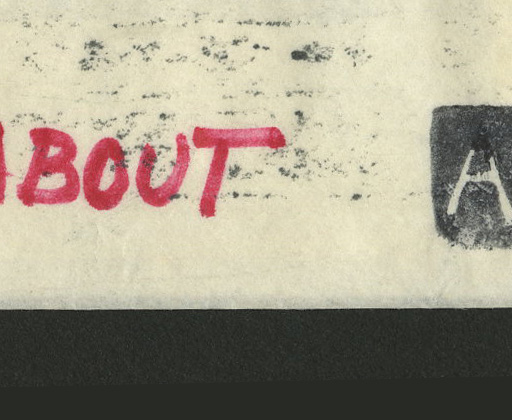 ABOUT A